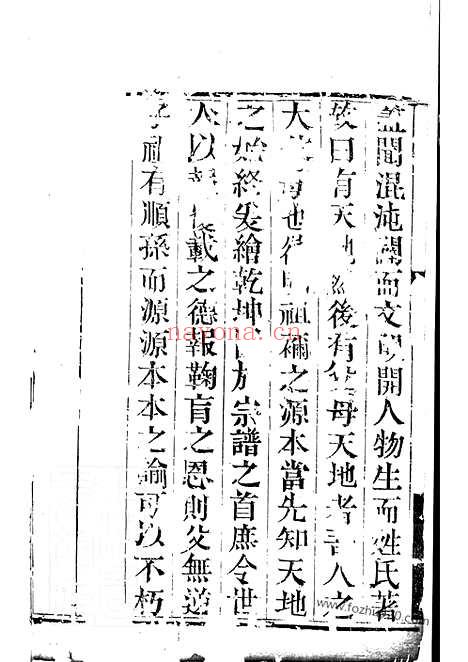 蓋聞混沌闢而文明開人物生而姓氏著
故曰有天地然後有父母天地者吾人之
大父母也祖禰之源本當先知天地
之始終爰繪乾坤於宗譜之首庶令世
人以載之德報鞠育之恩則父無逆
子祖有順孫而源源本本之論可以不朽
nayona.cn
www.fozhu920.com